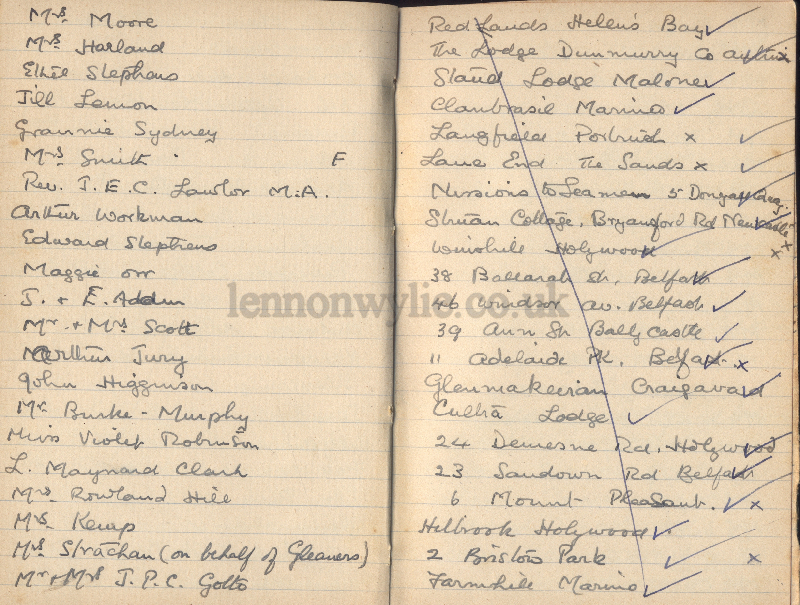 Mrs. Moore
Mrs. Harland
Ethel Stephens
Jill Lemon
Grannie Sydney
Mrs. Smith F
Rev. J. E. C. Lawlor M.A.
Arthur Workman
Edward Stephens
Maggie Orr
J. + E.
Mr. + Mrs Scott
Arthur Jury
John Higginson
Mr. Burke-Murphy
Miss Violet Robinson
L. Maynard Clark
Mrs. Rowland Hill
Mrs. Kemp
Mrs. Strachan (on behalf of Gleaners)
Mr + Mrs J. P. C. Gotto
Red Lands Helen's Bay
The Lodge Dunmurry Co Antrim
Lodge Malone
Clanbrasil Marino
Langfield Portrush x
Lane End The Sands x
Missions to Seamen 5 Donegall Quay.
Struan Cottage, Bryansford Rd Newcastle x
Holywood x
38 Ballarat St. Belfast
46 Windsor Av. Belfast
39 Ann St Ballycastle
11 Adelaide Pk. Belfast. x
Glenmakeeran Craigavad
Cultra Lodge
24 Demesne Rd. Holywood
23 Sandown Rd Belfast
6 Mount Pleasant. x
Hillbrook Holywood
2 Bristow Park x
Farmhill Marino
lennonwylie.co.uk